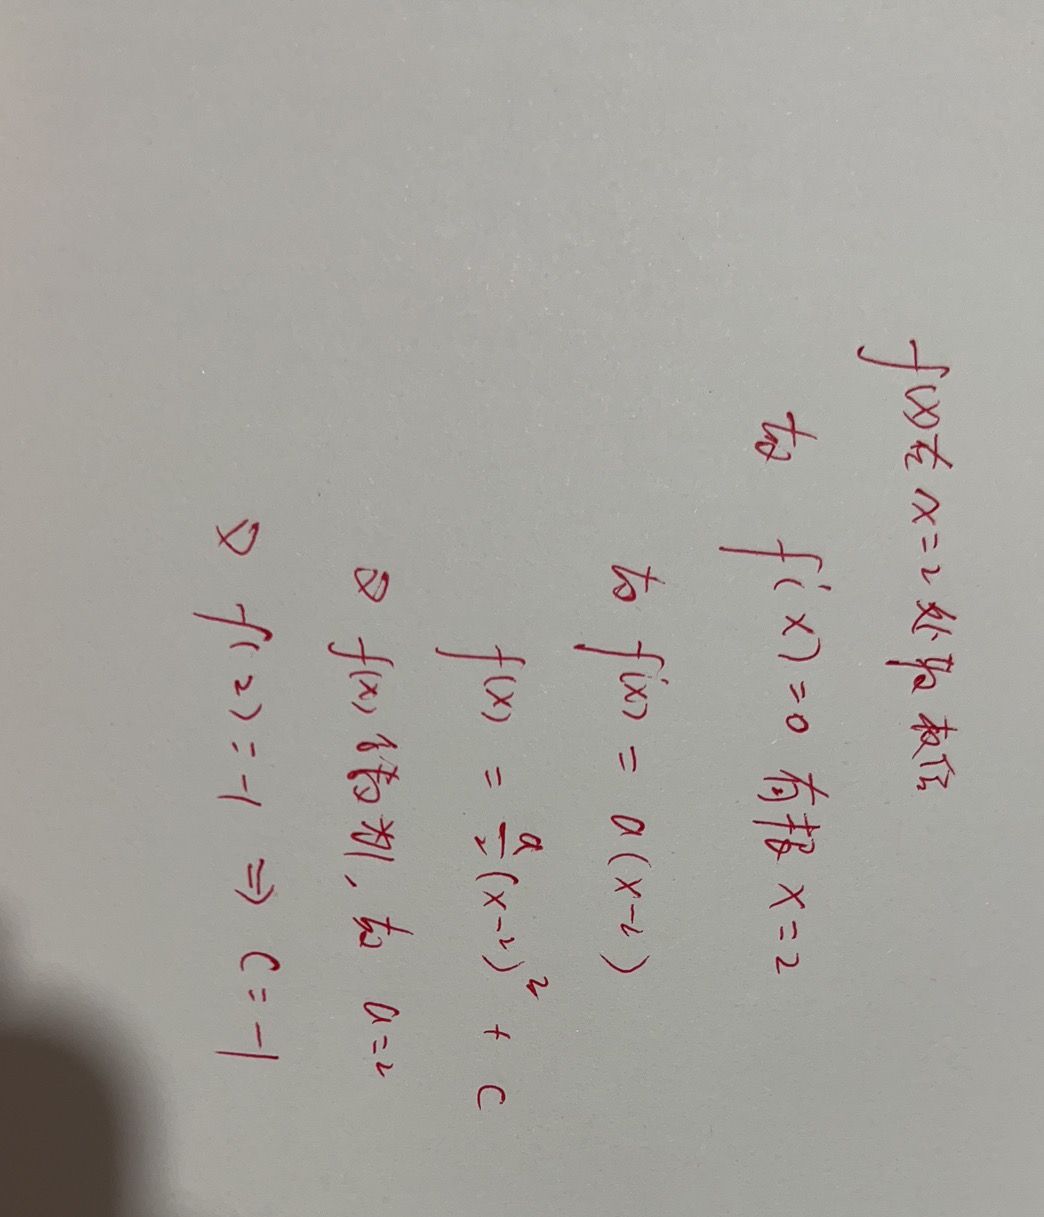 f(x)在x=2处有极值
故 f'(x)=0 有根 x=2
故 f'(x) = a(x-2)
f(x) = a/2 (x-2)² + c
又 f(x) 首为1, 故 a=2
又 f(2)=-1 ⇒ c=-1